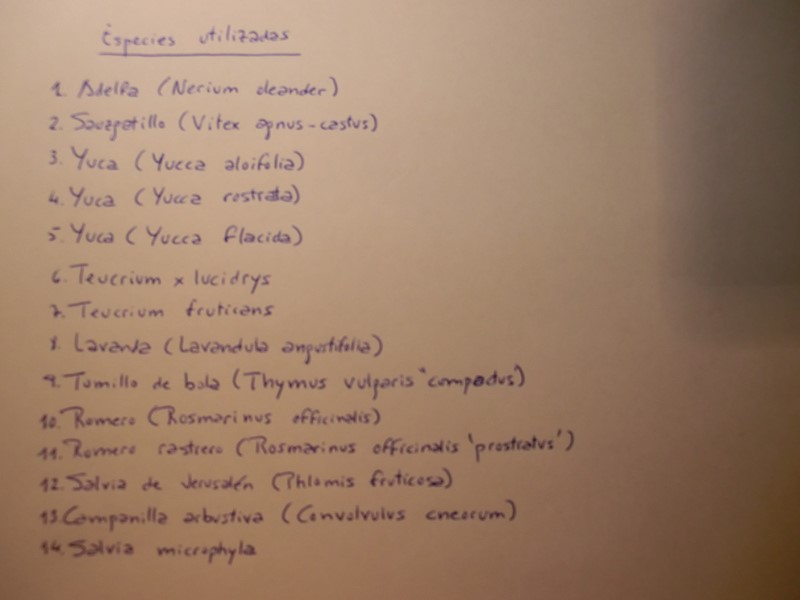 Especies utilizadas
1. Adelfa (Nerium oleander)
2. Sauzgatillo (Vitex agnus-castus)
3. Yuca (Yucca aloifolia)
4. Yuca (Yucca rostrata)
5. Yuca (Yucca flacida)
6. Teucrium x lucidrys
7. Teucrium fruticans
8. Lavanda (Lavandula angustifolia)
9. Tomillo de bola (Thymus vulgaris 'compactus')
10. Romero (Rosmarinus officinalis)
11. Romero rastrero (Rosmarinus officinalis 'prostratus')
12. Salvia de Jerusalén (Phlomis fruticosa)
13. Campanilla arbustiva (Convolvulus cneorum)
14. Salvia microphyla